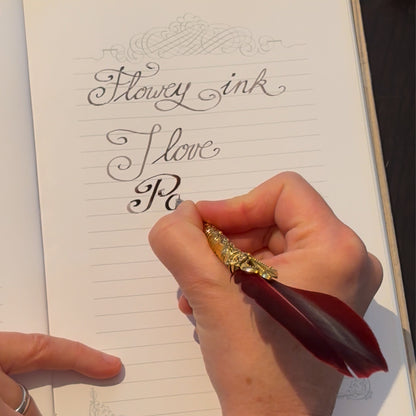 Flowey ink
I love
Po